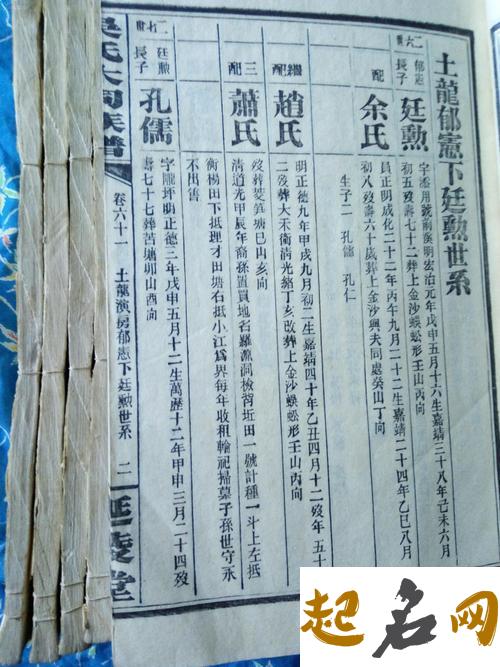 土龍郁憲下廷勲世系
二六世
郁憲
長子
廷勲
字
用號
南
明宏治元年戊申五月十六生嘉靖三十八年己未六月
初五歿壽七十二葬上金沙蜈蚣形壬山丙向
配
余氏
貞正明成化二十二年丙午九月二十二生嘉靖二十四年乙巳八月
初八歿壽六十歲葬上金沙與夫同處癸山丁向
生子二 孔儒 孔仁
繼配
趙氏
明正德九年甲戌九月初二生嘉靖四十年乙丑四月十二歿年五十
二歿葬大禾衝清光緒丁亥改葬上金沙蜈蚣形壬山丙向
三配
蕭氏
歿葬菱笋塘巳山亥向
清道光甲辰年裔孫置買地名羅漁洞檢習近田一號計種一斗上左抵
衡楊田下抵理才田塘右抵小江爲界每年收租輪祀掃墓子孫世守永
不出售
二七世
廷勲
長子
孔儒
字隴坪明正德三年戊申五月十二生萬歷十二年甲申三月二十四歿
壽七十七葬苦塘卯山酉向
吳氏大同族譜
卷六十一
土龍演房郁憲下廷勲世系
二
延陵堂
起名网